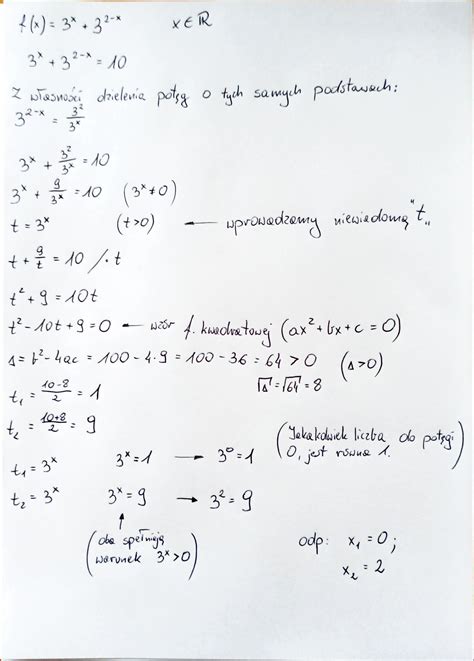 f(x) = 3^x + 3^(2-x)    x ∈ ℝ
3^x + 3^(2-x) = 10
Z własności dzielenia potęg o tych samych podstawach:
3^(2-x) = 3^2/3^x
3^x + 3^2/3^x = 10
3^x + 9/3^x = 10    (3^x ≠ 0)
t = 3^x    (t>0)    — wprowadzamy niewiadomą "t"
t + 9/t = 10 /·t
t^2 + 9 = 10t
t^2 - 10t + 9 = 0 ← wzór f. kwadratowej (ax^2 + bx + c = 0)
Δ = b^2 - 4ac = 100 - 4·9 = 100 - 36 = 64 > 0    (Δ>0)
√Δ = √64 = 8
t₁ = (10-8)/2 = 1
t₂ = (10+8)/2 = 9
(Jakakolwiek liczba do potęgi
0, jest równa 1.)
t₁ = 3^x    3^x = 1    → 3^0 = 1
t₂ = 3^x    3^x = 9    → 3^2 = 9
↑
(oba spełniają
warunek 3^x > 0)
odp: x₁ = 0;
x₂ = 2